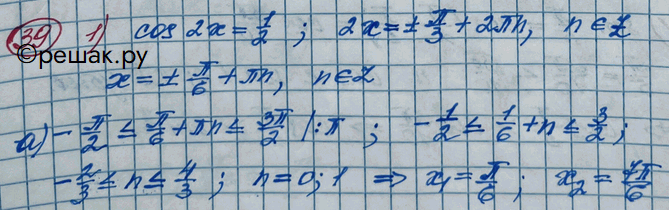 39 1) cos 2x = 1/2 ; 2x = ± π/3 + 2πn, n ∈ Z
©решак.ру
x = ± π/6 + πn, n ∈ Z
а) -π/2 ≤ π/6 + πn ≤ 3π/2 |:π ; -1/2 ≤ 1/6 + n ≤ 3/2 ;
-2/3 ≤ n ≤ 4/3 ; n = 0; 1 ⇒ x₁ = π/6 ; x₂ = 7π/6